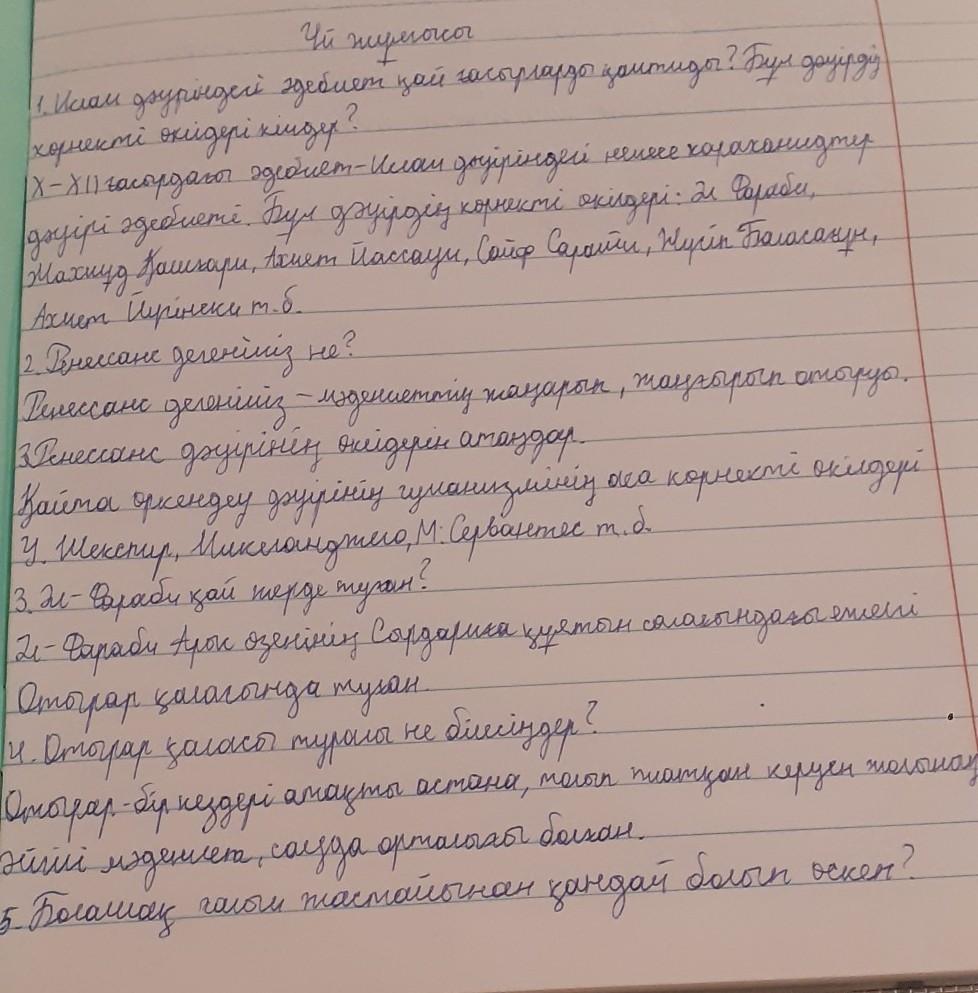 Үй жұмысы
1. Ислам дәуріндегі әдебиет қай ғасырларды қамтиды? Бұл дәуірдің
көрнекті өкілдері кімдер?
X-XII ғасырдағы әдебиет-Ислам дәуіріндегі немесе караханидтер
дәуірі әдебиеті. Бұл дәуірдің көрнекті өкілдері: Әл Фараби,
Махмұд Қашқари, Ахмет Йассауи, Сайф Сараи, Жүсіп Баласағұн,
Ахмет Йүгінеки т.б.
2. Ренессанс дегеніміз не?
Ренессанс дегеніміз – мәдениеттің жаңарып, жаңғырып отыруы.
3. Ренессанс дәуірінің өкілдерін атаңдар.
Қайта өркендеу дәуірінің гуманизмінің аса көрнекті өкілдері
У. Шекспир, Микеланджело, М. Сервантес т.б.
3. Әл-Фараби қай жерде туған?
Әл-Фараби Арыс өзенінің Сырдарияға құятын саласындағы ежелгі
Отырар қаласында туған.
4. Отырар қаласы туралы не білесіңдер?
Отырар-бір кездері атақты астана, толып жатқан керуен жолының
әйгілі мәдениет, сауда орталығы болған.
5. Болашақ ғалым жастайынан қандай болып өскен?